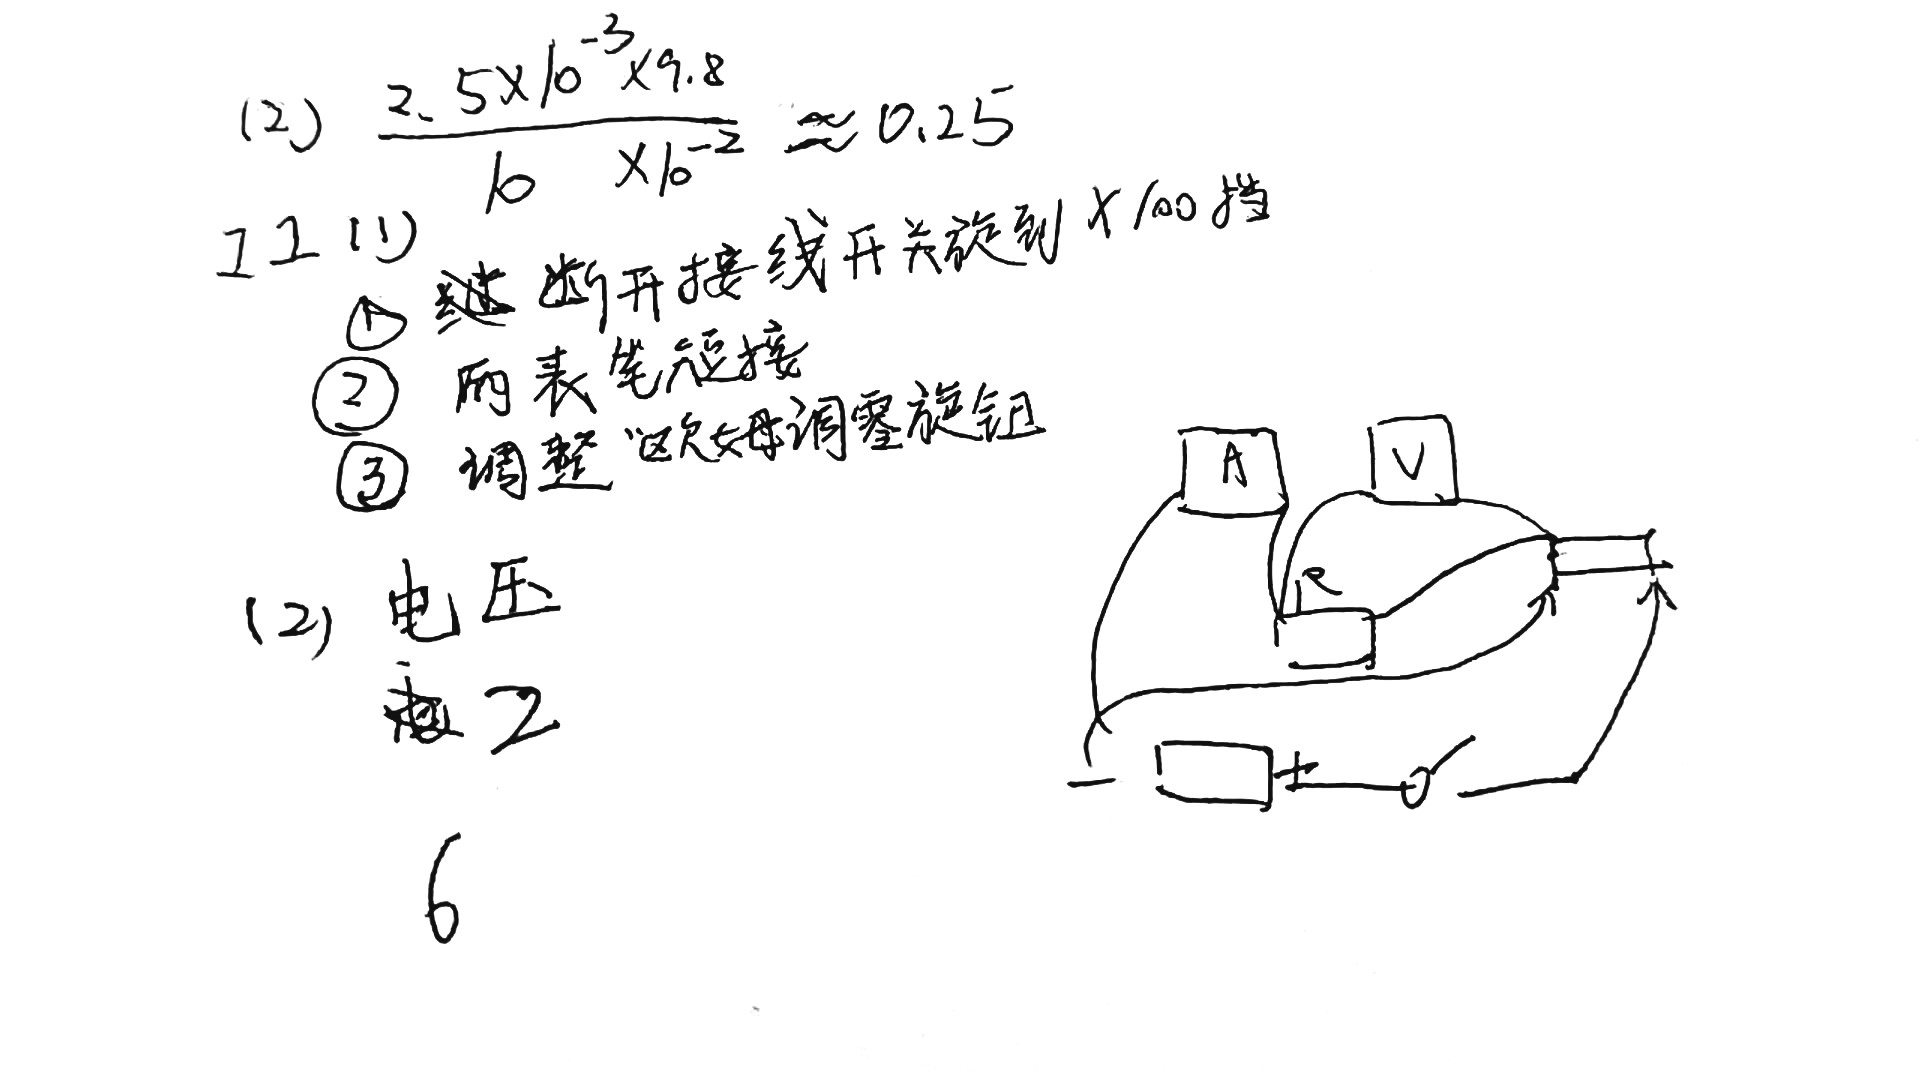 (2) 2.5×10⁻³×9.8 / 10 ×10⁻² ≈ 0.25
11 (1)
① 断开接线开关旋到×100挡
② 两表笔短接
③ 调整“欧姆调零旋钮
(2) 电压
2
6
A V
R
− +